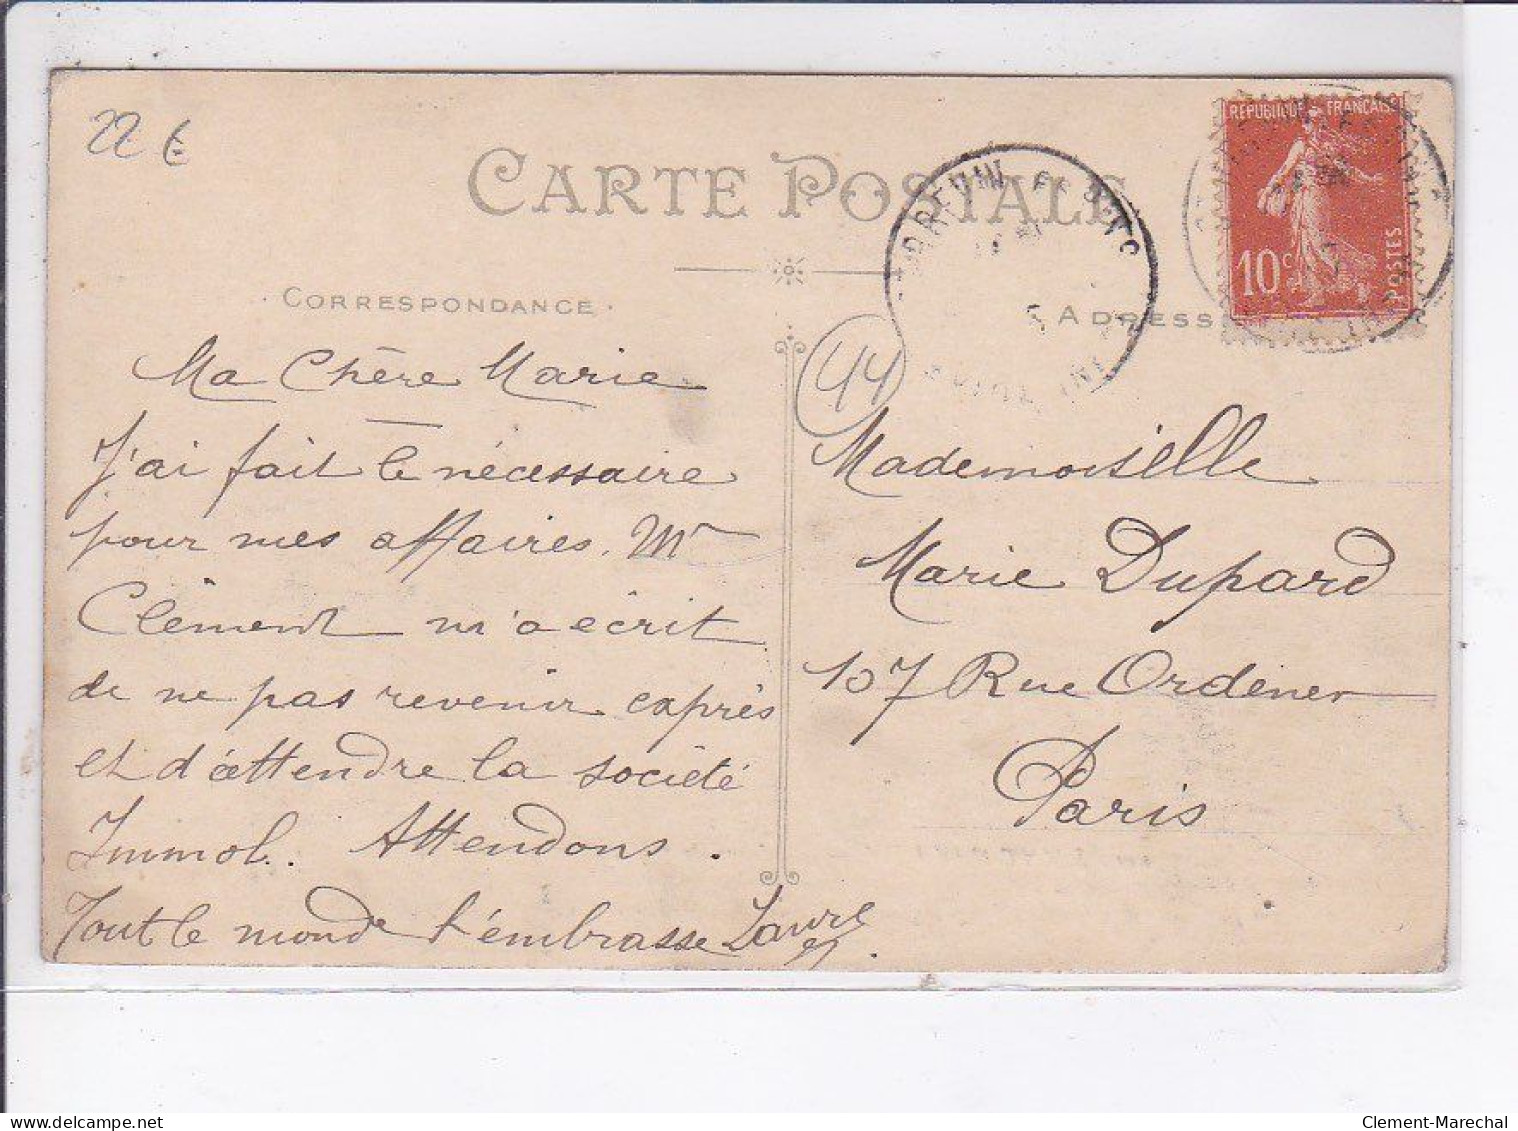 22 €
CARTE POSTALE
REPUBLIQUE FRANÇAISE
10c
POSTES
CORRESPONDANCE
ADRESSE
44
Ma Chère Marie
J'ai fait le nécessaire
pour mes affaires. Mr
Clément m'a écrit
de ne pas revenir exprès
et d'attendre la société
Immob. Attendons.
Tout le monde t'embrasse Laure
Mademoiselle
Marie Dupard
107 Rue Ordener
Paris
delcampe.net
Clement-Marechal